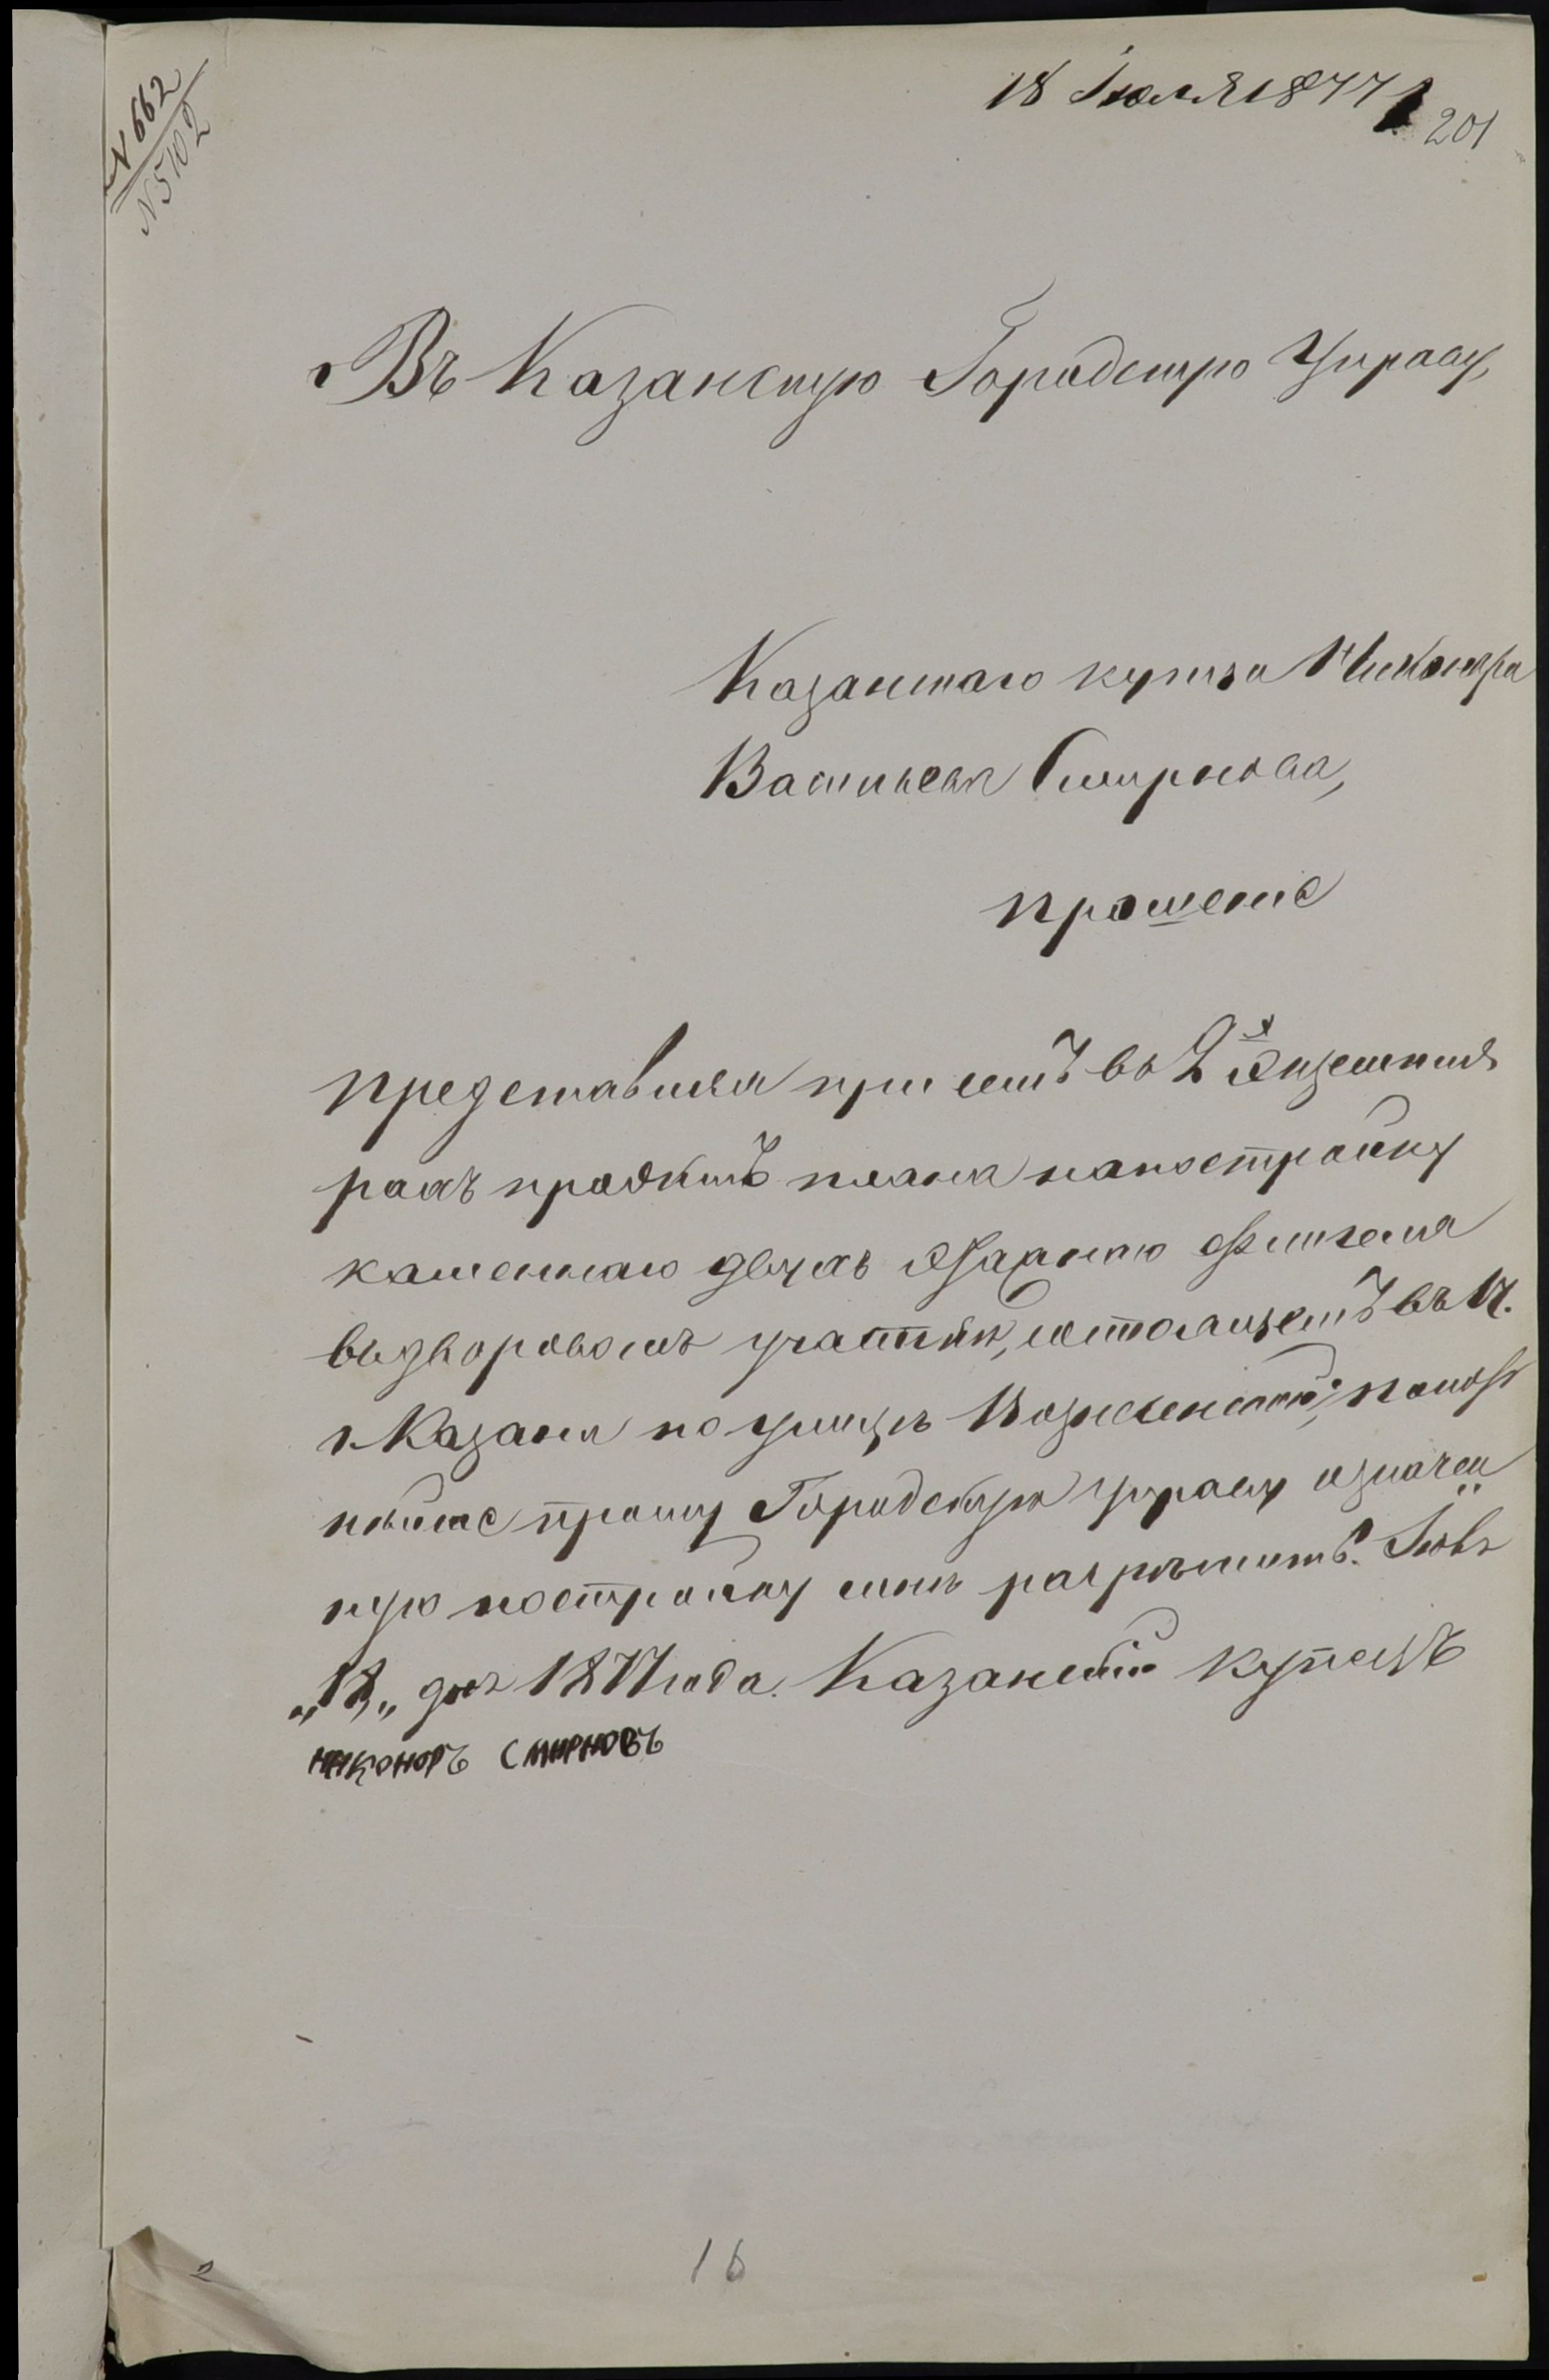 N 662
N 5102
18 Іюля 1877
201
Въ Казанскую Городскую Управу,
Казанскаго купца Никанора
Васильева Смирнова,
прошеніе
Представляя при семъ въ 2х экземпля
рахъ проэктъ плана на постройку
каменнаго двухъ этажнаго флигеля
въ дворовомъ участкѣ, состоящемъ въ 1 ч.
г. Казани по улицѣ Вознесенской, покор
нѣйше прошу Городскую управу означен
ную постройку мнѣ разрѣшить. Іюля
„18„ дня 1877 года. Казанскій купецъ
никоноръ смирновъ
16